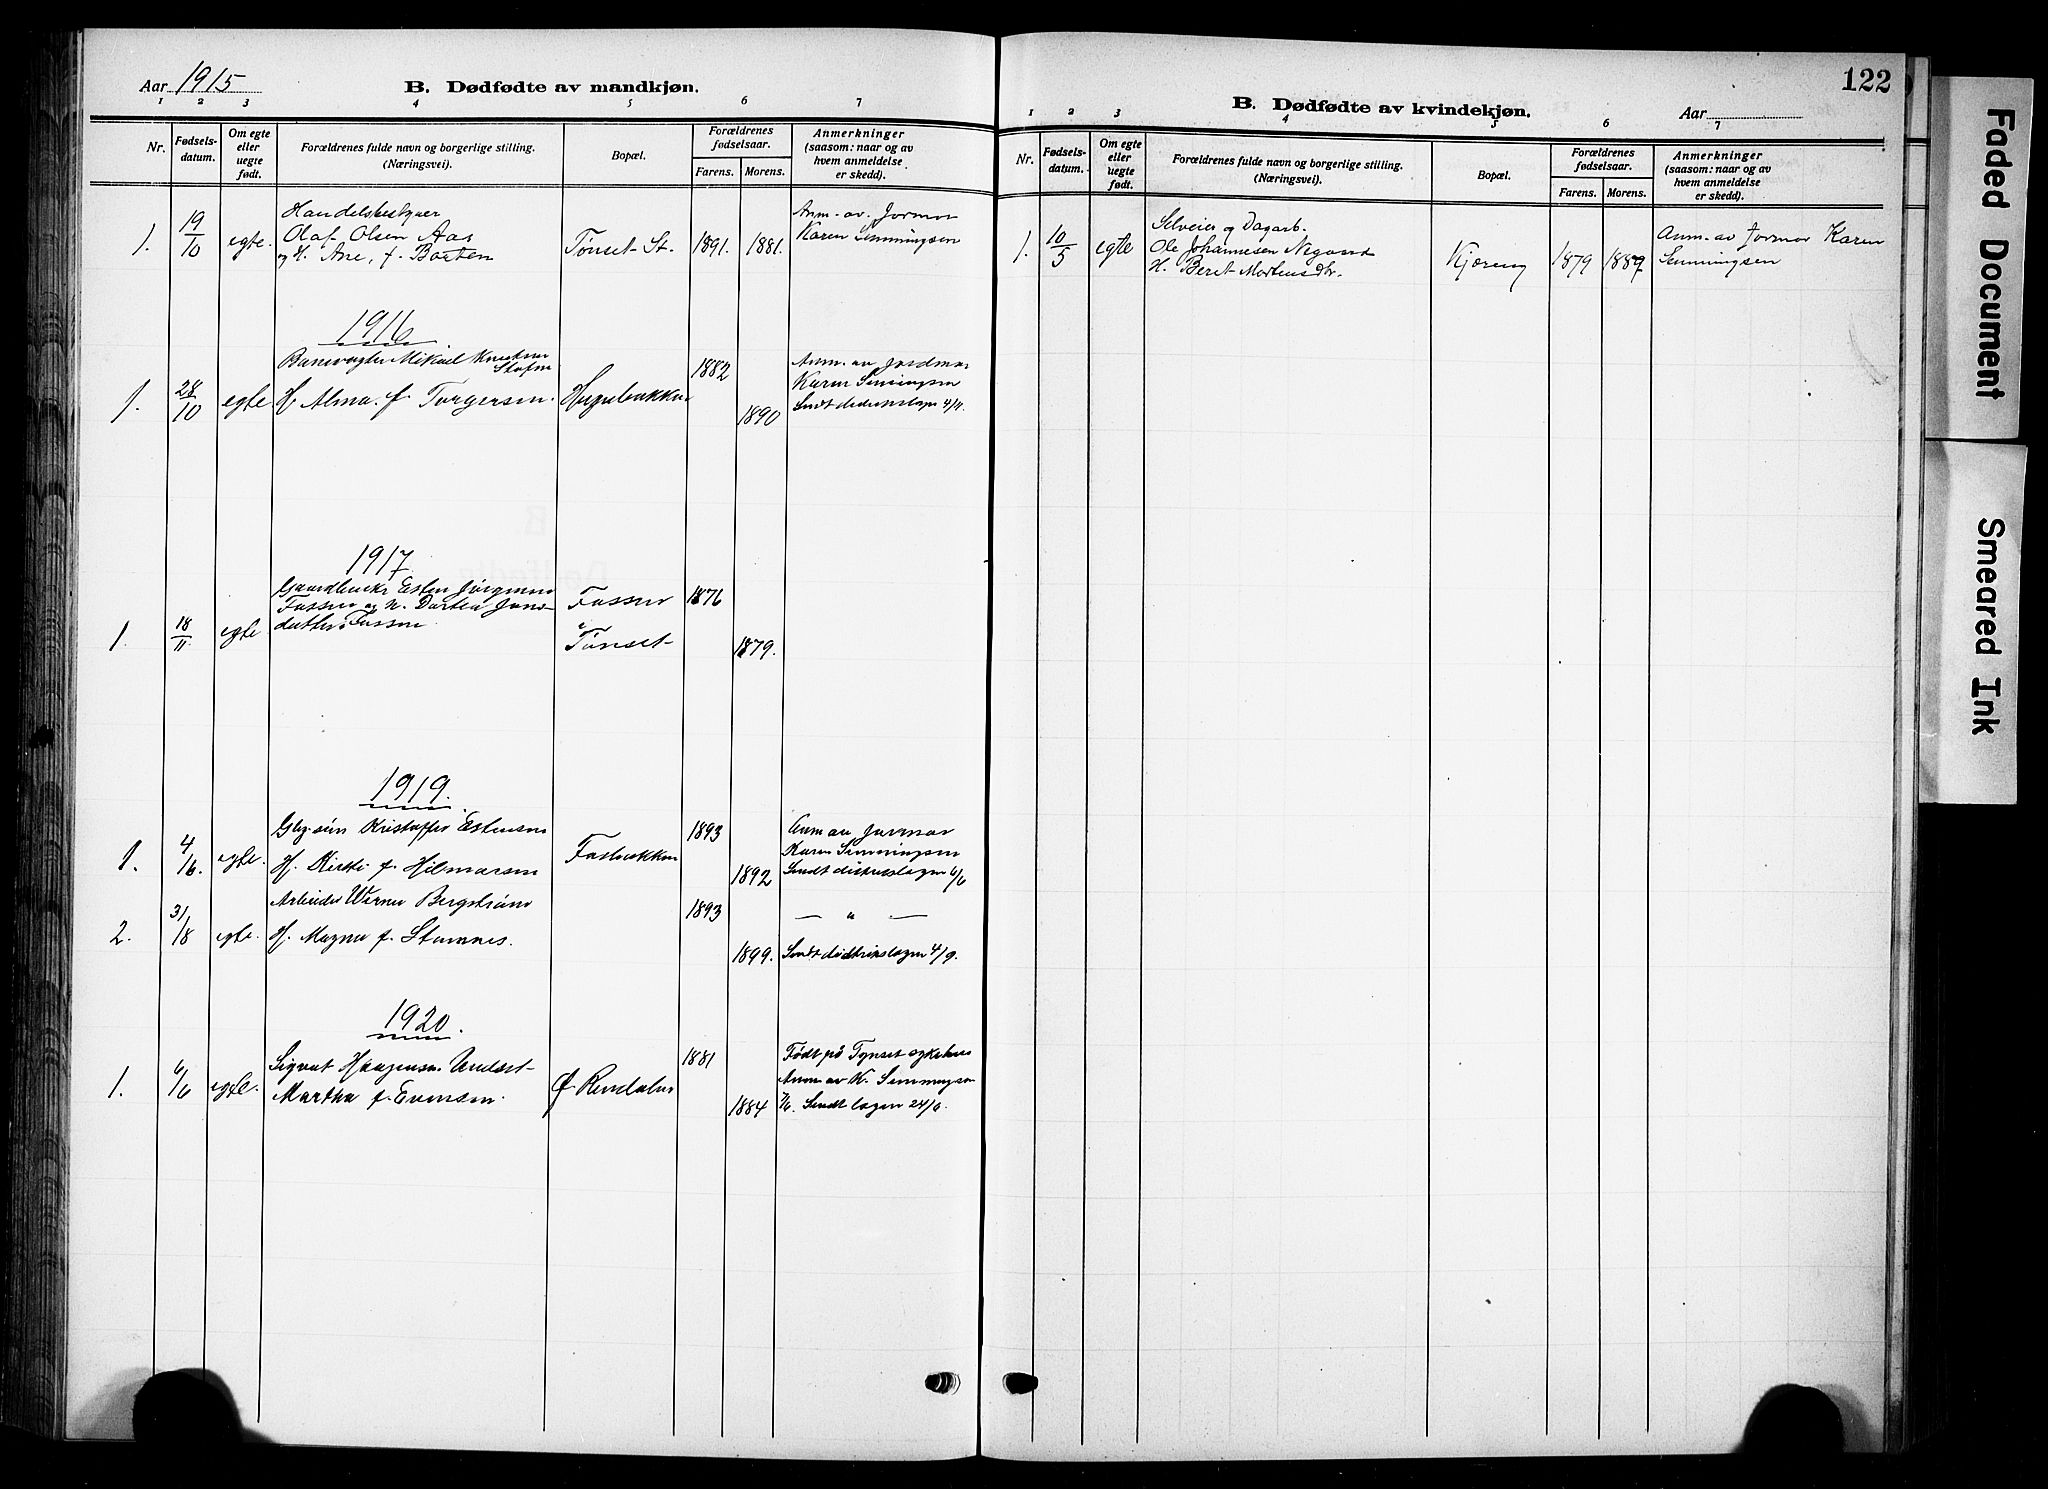 Aar 1915
B. Dødfødte av mandkjøn.
1 2 3 4 5 6 7
Nr.
Fødsels-
datum.
Om egte
eller
uegte
født.
Forældrenes fulde navn og borgerlige stilling.
(Næringsvei).
Bopæl.
Forældrenes
fødselsaar.
Farens. Morens.
Anmerkninger
(saasom: naar og av
hvem anmeldelse
er skedd).
1. 19/10 egte.
Handelsbestyrer
Olaf Olsen Aas
og H. Ane, f. Borten
Tønset St. 1891. 1881.
Anm. av Jormor
Karen Semmingsen
1916
1. 28/10 egte
Banevogter Mikael Knudsen
H. Alma f. Torgersen.
1882
1890
Anm. av Jordmor
Karen Semingsen
Sendt 4/11.
1917
1. 18/11 egte
Gaardbruker Esten Jörgensen
Fosseu og H. Dortea Jons
datter Fosseu
Tönset
1876
1879.
1919.
1. 4/6. egte.
Kristoffer Estensen
H. f. Hilmarsen
1893
1892
Anm av Jormor
Karen Semmingsen
Sendt distrikslægen 6/6
2. 31/8 egte.
Arbeider Werner Bergström
H. Magna f. Stamnes.
1893
1899.
— " —
Sendt distrikslægen 4/9.
1920.
1. 6/6 egte.
Sigvat Haagensen Undset
Martha f. Evensen.
Ø. Rendalen
1881
1884
Født på Tynset sykehus
Anm av K. Semmingsen
7/6. Sendt lægen 24/6.
122
B. Dødfødte av kvindekjøn.
Aar
1 2 3 4 5 6 7
Nr.
Fødsels-
datum.
Om egte
eller
uegte
født.
Forældrenes fulde navn og borgerlige stilling.
(Næringsvei).
Bopæl.
Forældrenes
fødselsaar.
Farens. Morens.
Anmerkninger
(saasom: naar og av
hvem anmeldelse
er skedd).
1. 10/5 egte
Selveier og Dagarb.
Ole Johannesen Nygaard
H. Beret Mortensdtr.
Kjøreng 1879 1887
Anm. av Jormor Karen
Semmingsen
Faded Document
Smeared Ink